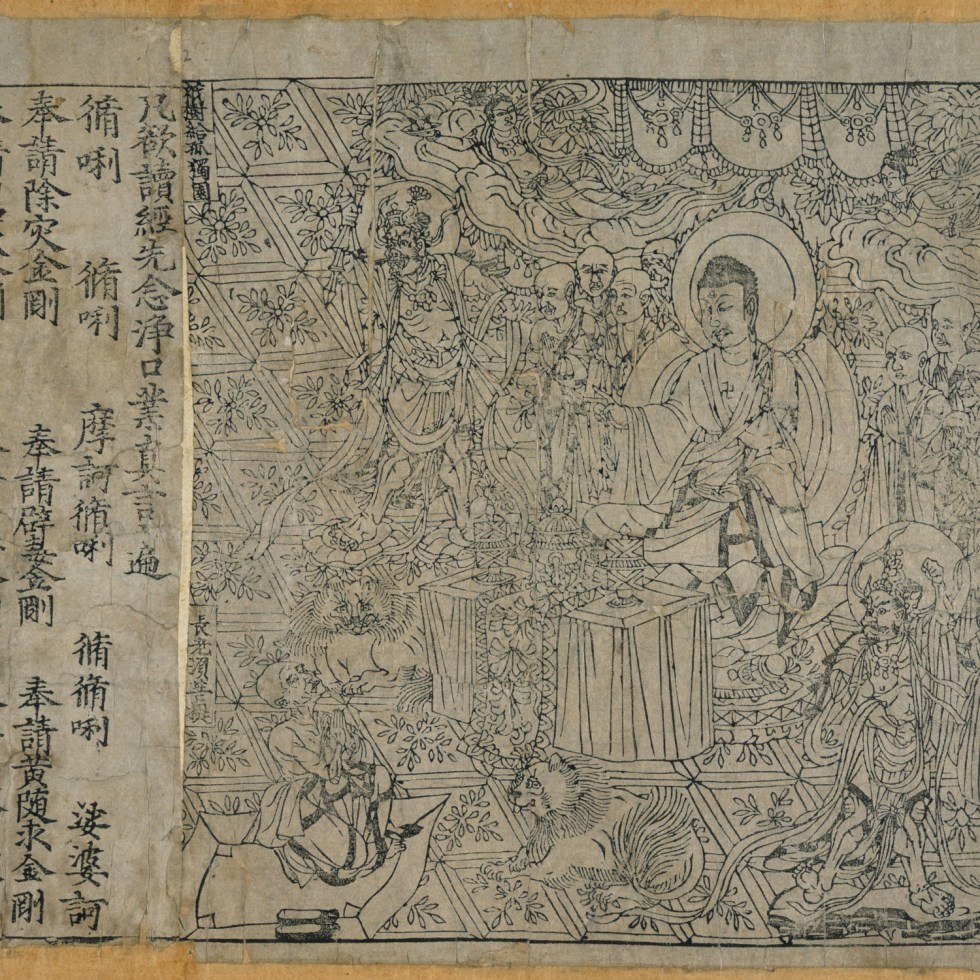 祇樹給孤獨園
長老須菩提
凡欲讀經先念淨口業真言遍
脩唎 脩唎 摩訶脩唎 脩脩唎 娑婆訶
奉請除灾金剛 奉請辟毒金剛 奉請黃随求金剛